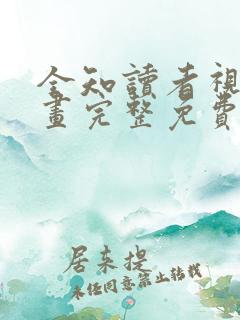 全知讀者視
畫完整免費
居未提
未经同意禁止转载